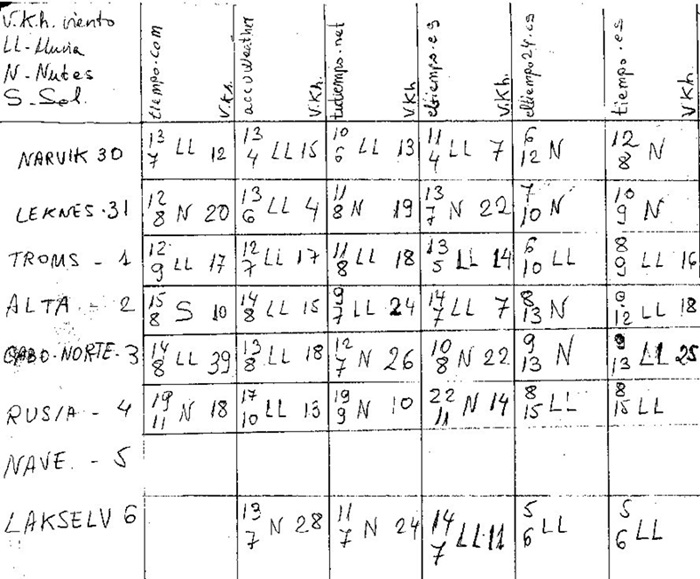 V.K.h. viento
LL-Lluvia
N-Nubes
S-Sol.
tiempo.com V.K.h. accuWeather V.K.h. tutiempo.net V.K.h eltiempo.es V.K.h. eltiempo24.es tiempo.es V.K.h.
NARVIK 30 13/7 LL 12 13/4 LL 15 10/6 LL 13 11/4 LL 7 6/12 N 12/8 N
LEKNES.31 12/8 N 20 13/6 LL 4 11/8 N 19 13/7 N 22 7/10 N 10/9 N
TROMS - 1 12/9 LL 17 12/7 LL 17 11/8 LL 18 13/5 LL 14 6/10 LL 8/9 LL 16
ALTA - 2 15/8 S 10 14/8 LL 15 9/7 LL 24 14/7 LL 7 8/13 N 9/12 LL 18
CABO.NORTE.3 14/8 LL 39 13/8 LL 18 12/7 N 26 10/8 N 22 9/13 N 9/13 LL 25
RUSIA - 4 19/11 N 18 17/10 LL 13 19/9 N 10 22/11 N 14 8/15 LL 8/15 LL
NAVE. - 5
LAKSELV 6 13/7 N 28 11/7 N 24 14/7 LL 11 5/6 LL 5/6 LL